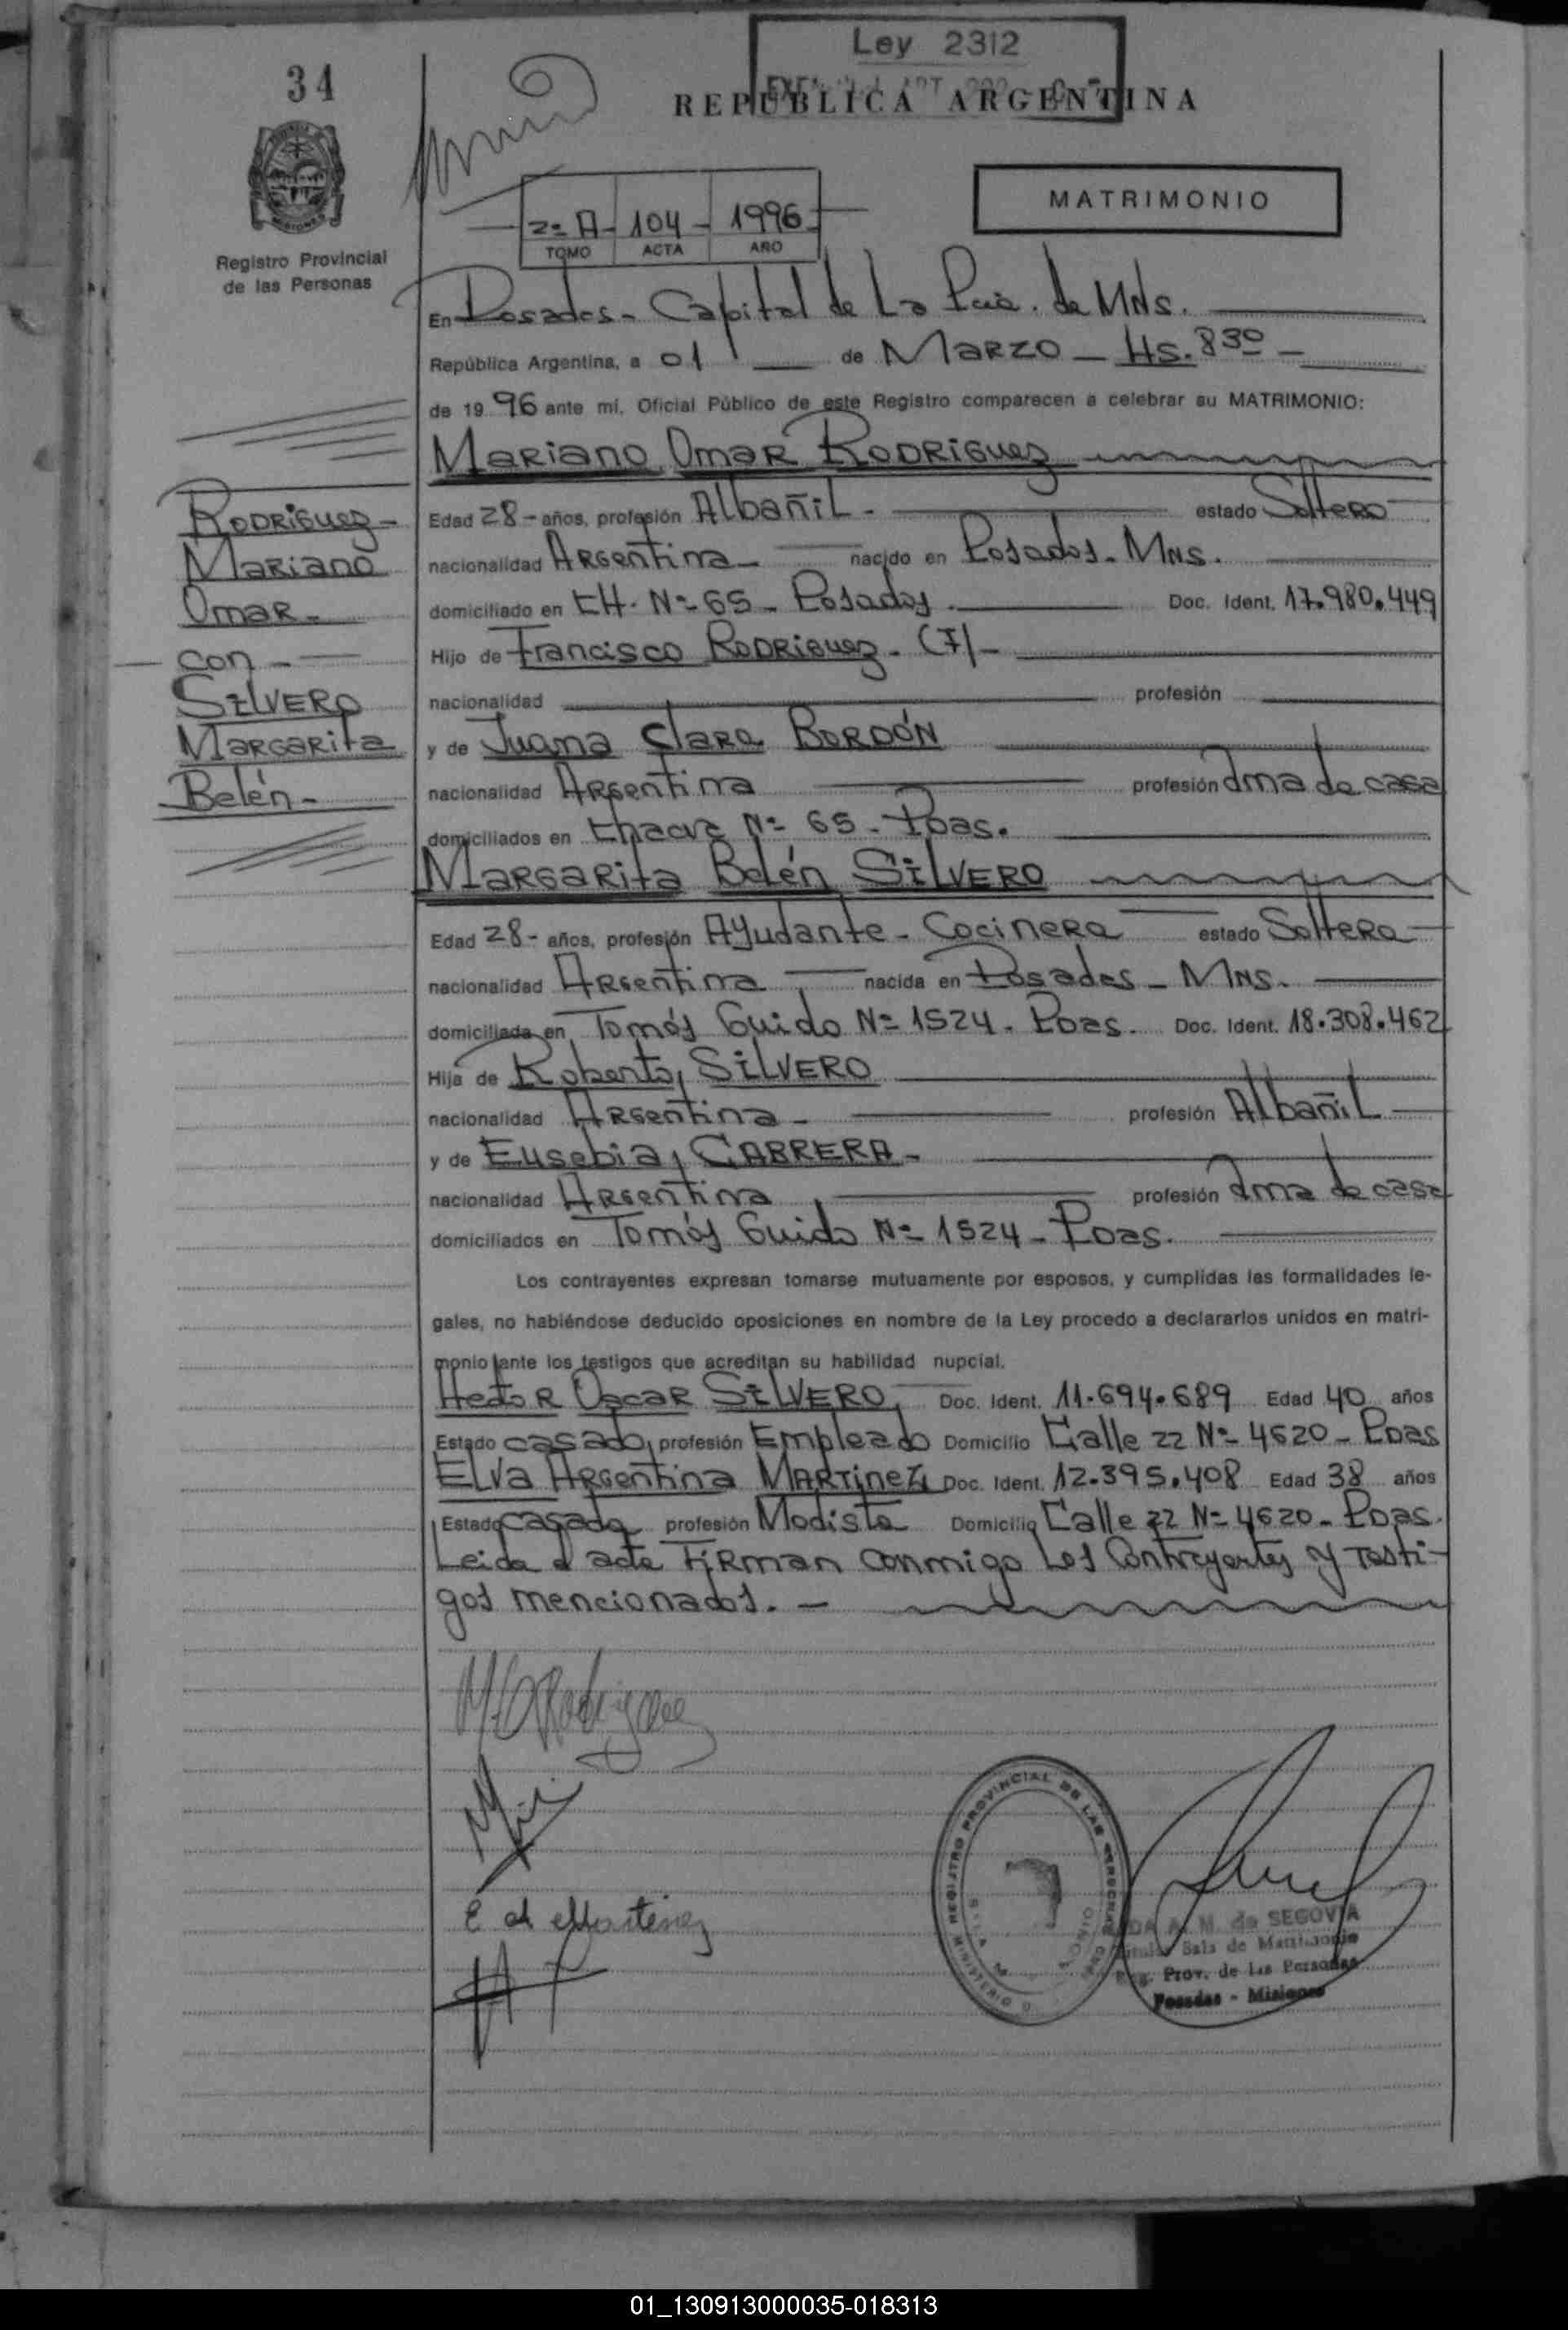 Ley 2312
34
REPUBLICA ARGENTINA
MATRIMONIO
2º A - 104 - 1996
TOMO ACTA AÑO
Registro Provincial
de las Personas
En Posadas - Capital de La Pcia. de Mns.
República Argentina, a 01 de Marzo - Hs. 8 30 -
de 19 96 ante mí, Oficial Público de este Registro comparecen a celebrar su MATRIMONIO:
Mariano Omar Rodriguez
Rodriguez -
Mariano
Omar -
con -
Silvero
Margarita
Belén -
Edad 28 - años, profesión Albañil - estado Soltero
nacionalidad Argentina - nacido en Posadas - Mns.
domiciliado en CH. Nº 65 - Posadas. Doc. Ident. 17.980.449
Hijo de Francisco Rodriguez - (F) -
nacionalidad profesión
y de Juana Clara Bordón
nacionalidad Argentina profesión Ama de casa
domiciliados en Chacra Nº 65 - Pdas.
Margarita Belén Silvero
Edad 28 - años, profesión Ayudante - Cocinera estado Soltera
nacionalidad Argentina nacida en Posadas - Mns.
domiciliada en Tomás Guido Nº 1524 - Pdas. Doc. Ident. 18.308.462
Hija de Roberto, Silvero
nacionalidad Argentina - profesión Albañil
y de Eusebia, Cabrera -
nacionalidad Argentina profesión Ama de casa
domiciliados en Tomás Guido Nº 1524 - Pdas.
Los contrayentes expresan tomarse mutuamente por esposos, y cumplidas las formalidades le-
gales, no habiéndose deducido oposiciones en nombre de la Ley procedo a declararlos unidos en matri-
monio ante los testigos que acreditan su habilidad nupcial.
Hector Oscar Silvero, Doc. Ident. 11.694.689 Edad 40 años
Estado casado, profesión Empleado Domicilio Calle 22 Nº 4620 - Pdas
Elva Argentina Martinez Doc. Ident. 12.395.408 Edad 38 años
Estado casada profesión Modista Domicilio Calle 22 Nº 4620 - Pdas.
Leida el acta firman conmigo los contrayentes y testi-
gos mencionados. -
M.O.Rodriguez
REGISTRO PROVINCIAL DE LAS PERSONAS
MINISTERIO
A. M. de SEGOVIA
Sala de Matrimonio
Reg. Prov. de las Personas
Posadas - Misiones
01_130913000035-018313